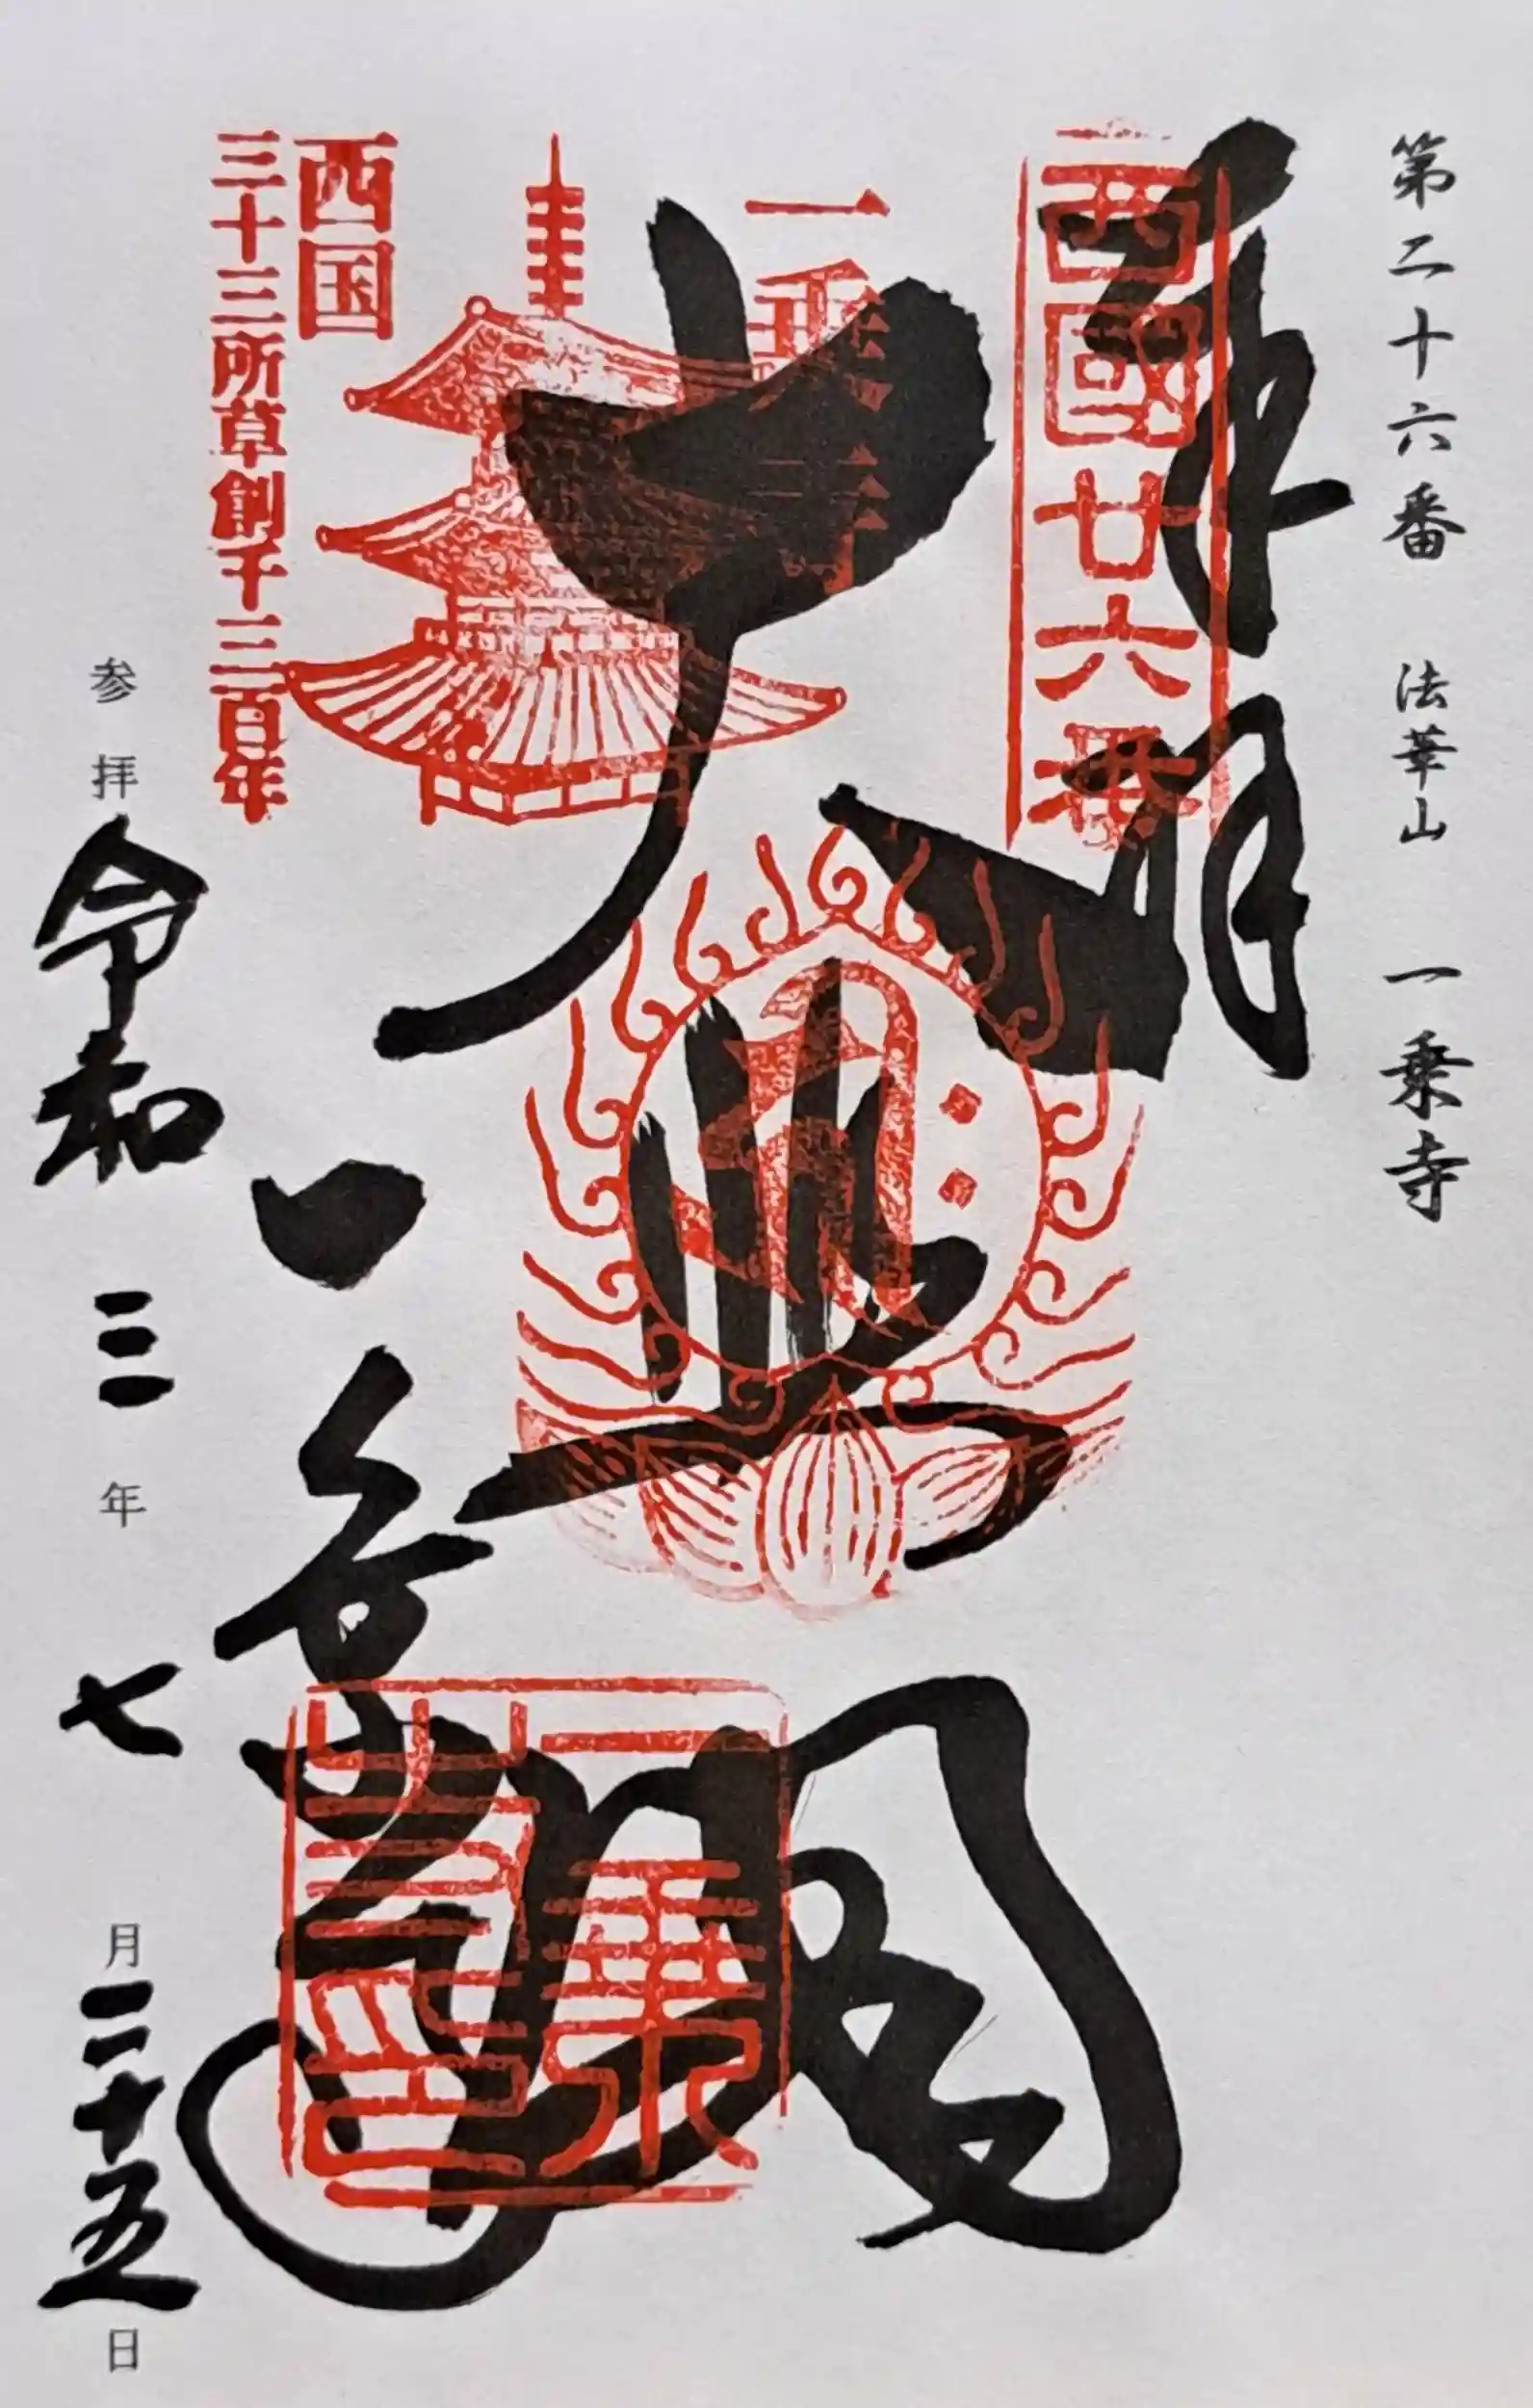 第二十六番 法華山 一乗寺
奉拝
西國廿六番
大悲閣
一乗寺
一乗寺
西国
三十三所草創千三百年
参拝 令和三年七月二十五日